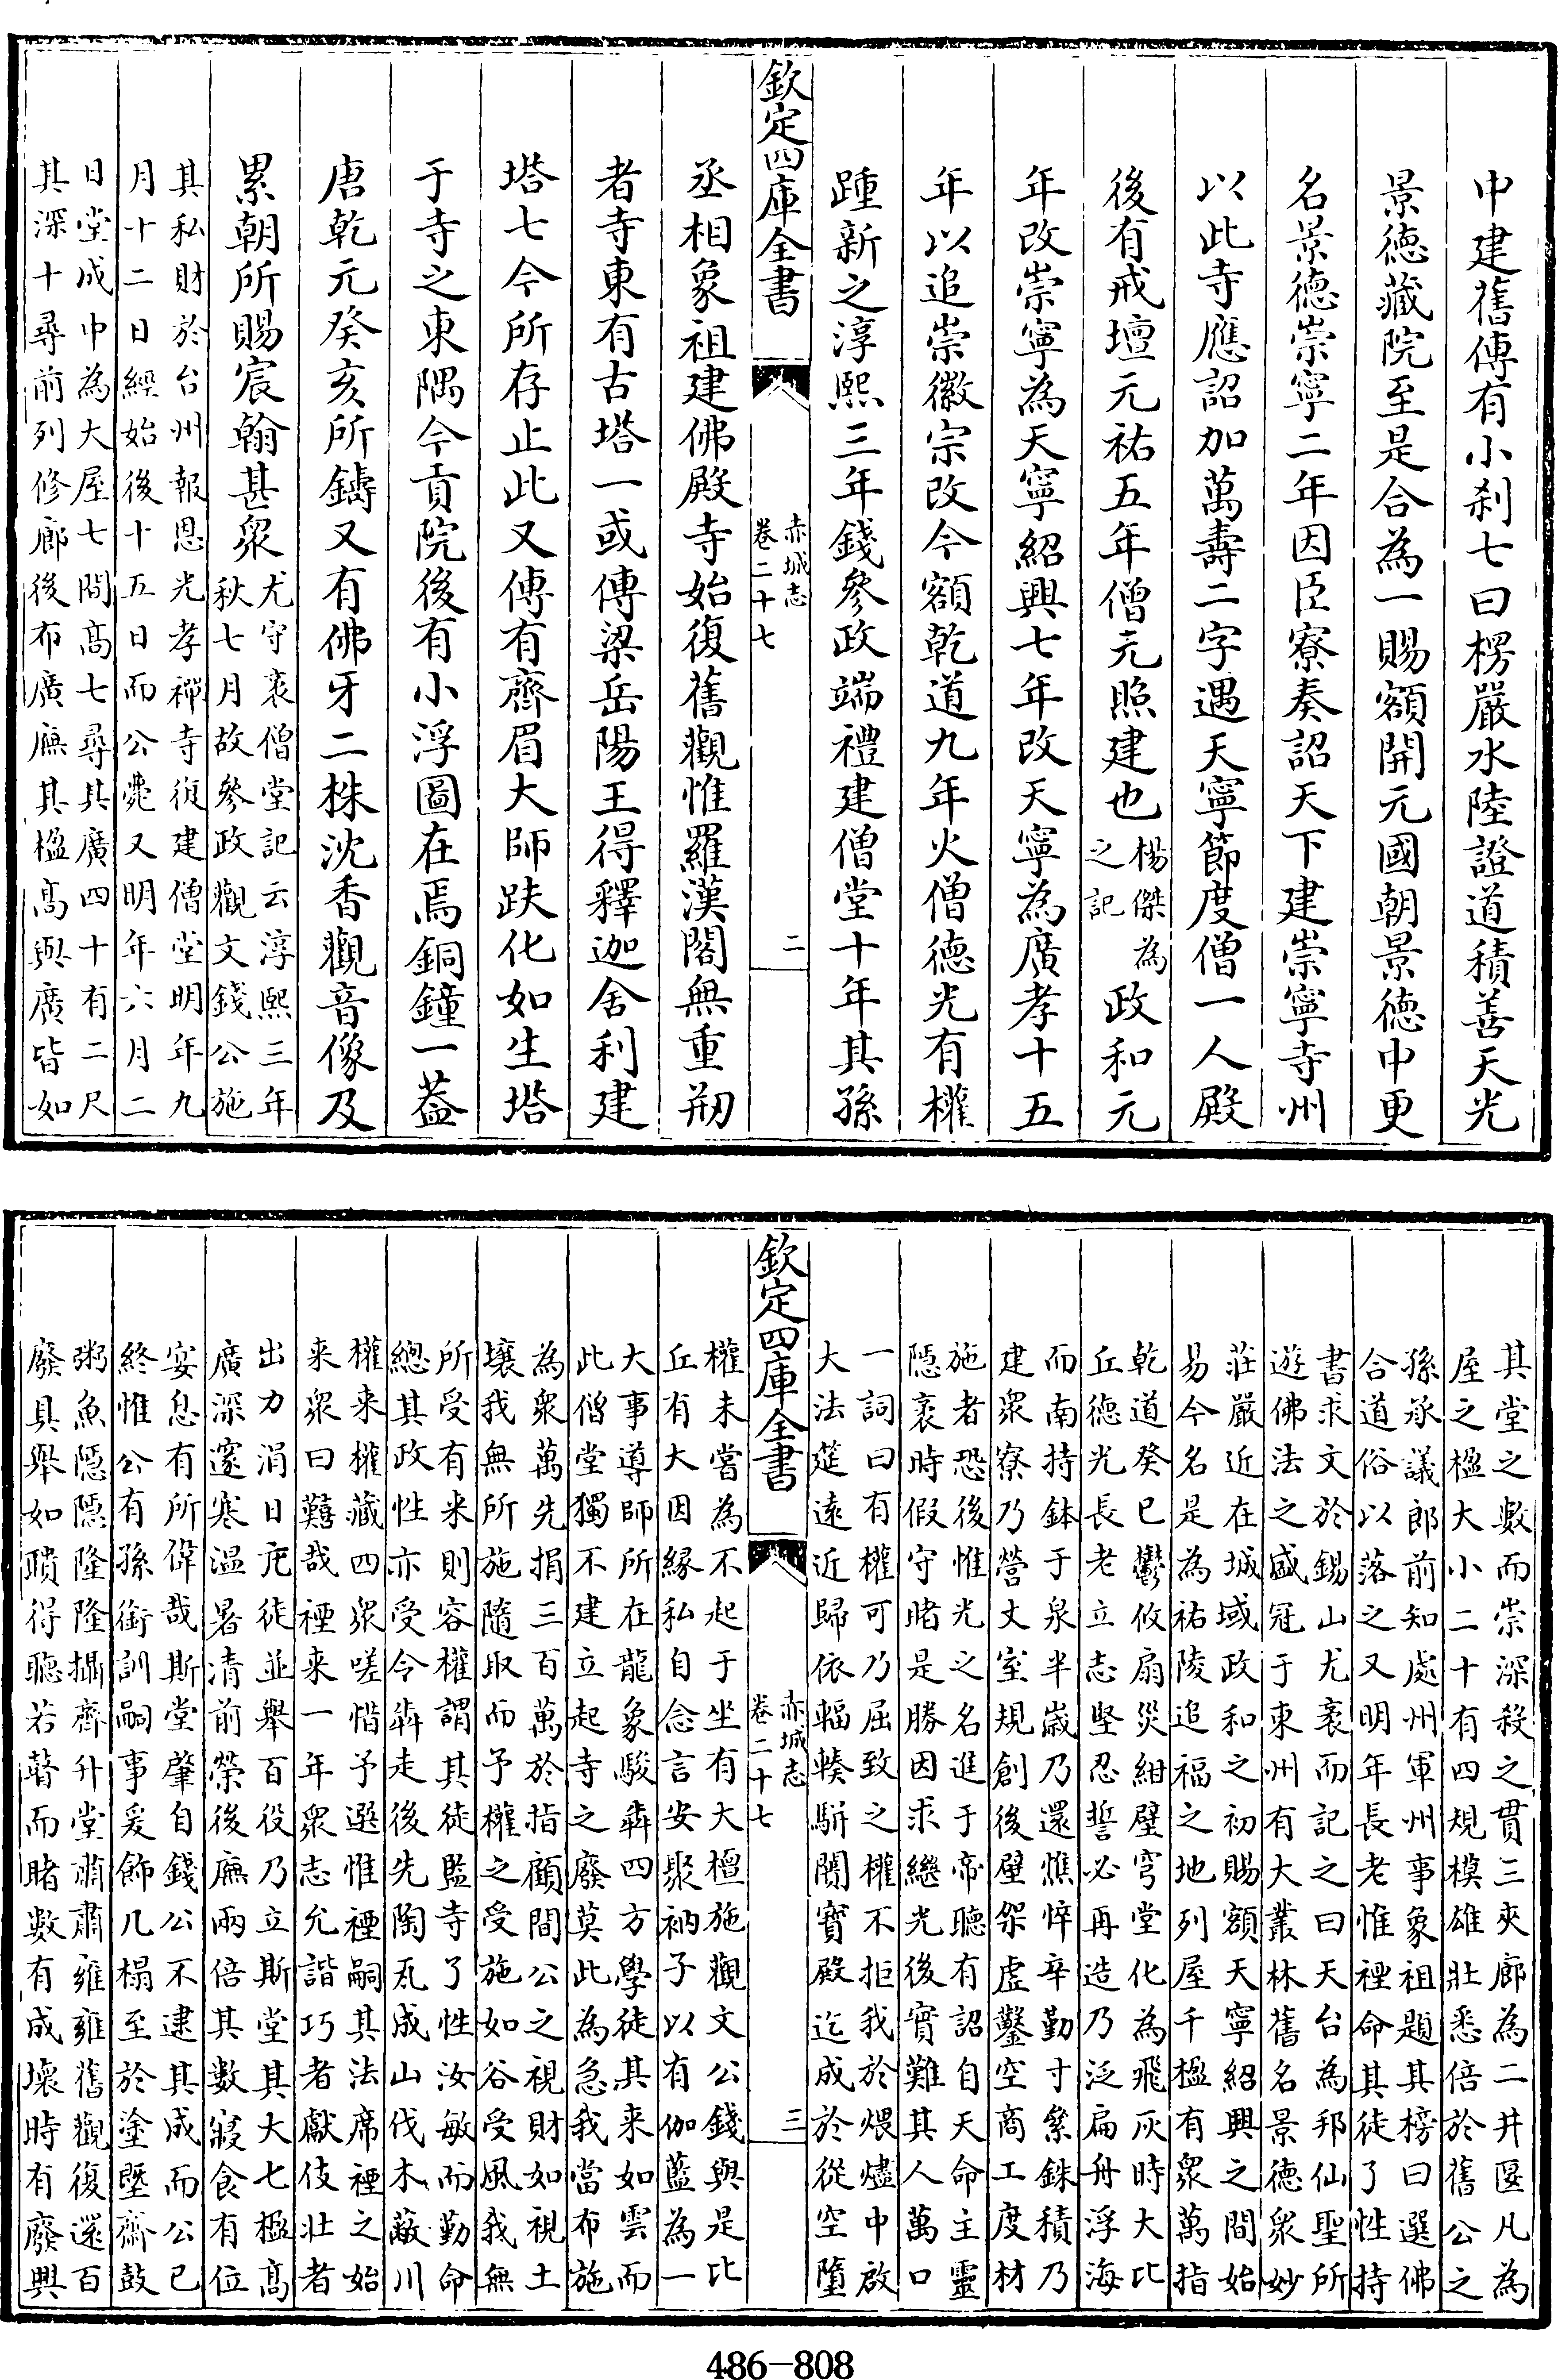 中建舊傳有小刹七曰楞嚴水陸證道積善天光
景徳藏院至是合為一賜額開元國朝景徳中更
名景徳崇寧二年因臣寮奏詔天下建崇寧寺州
以此寺應詔加萬壽二字遇天寧節度僧一人殿
後有戒壇元祐五年僧元照建也楊傑為之記政和元
年改崇寧為天寧紹興七年改天寧為廣孝十五
年以追崇徽宗改今額乾道九年火僧德光有權
踵新之淳熙三年錢參政端禮建僧堂十年其孫
欽定四庫全書
赤城志
卷二十七
二
丞相象祖建佛殿寺始復舊觀惟羅漢閣無重剏
者寺東有古塔一或傳梁岳陽王得釋迦舍利建
塔七今所存止此又傳有齊眉大師趺化如生塔
于寺之東隅今貢院後有小浮圖在焉銅鐘一葢
唐乾元癸亥所鑄又有佛牙二株沈香觀音像及
累朝所賜宸翰甚衆尤守袤僧堂記云淳熙三年
秋七月故參政觀文錢公施
其私財於台州報恩光孝禪寺復建僧堂明年九
月十二日經始後十五日而公薨又明年六月二
日堂成中為大屋七間高七尋其廣四十有二尺
其深十尋前列修廊後布廣廡其楹高與廣皆如
其堂之數而崇深殺之貫三夾廊為二井匽凡為
屋之楹大小二十有四規模雄壯悉倍於舊公之
孫承議郎前知處州軍州事象祖題其榜曰選佛
合道俗以落之又明年長老惟禋命其徒了性持
書求文於錫山尤袤而記之曰天台為邦仙聖所
遊佛法之盛冠于東州有大叢林舊名景德衆妙
莊嚴近在城域政和之初賜額天寧紹興之間始
易今名是為祐陵追福之地列屋千楹有衆萬指
乾道癸巳鬱攸扇災紺壁穹堂化為飛灰時大比
丘德光長老立志堅忍誓必再造乃泛扁舟浮海
而南持鉢于泉半歲乃還憔悴辛勤寸絫銖積乃
建衆寮乃營丈室規創後壁架虛鑿空商工度材
施者恐後惟光之名進于帝聽有詔自天命主靈
隱袤時假守睹是勝因求繼光後實難其人萬口
一詞曰有權可乃屈致之權不拒我於煨燼中啟
大法筵遠近歸依輻輳駢闐寳殿迄成於從空墮
欽定四庫全書
赤城志
卷二十七
三
權未嘗為不起于坐有大檀施觀文公錢與是比
丘有大因縁私自念言安聚衲子以有伽藍為一
大事導師所在龍象駿犇四方學徒其来如雲而
此僧堂獨不建立起寺之廢莫此為急我當布施
為衆萬先捐三百萬於指顧間公之視財如視土
壤我無所施隨取而予權之受施如谷受風我無
所受有来則容權謂其徒監寺了性汝敏而勤命
總其政性亦受令犇走後先陶瓦成山伐木蔽川
權来權藏四衆嗟惜予選惟禋嗣其法席禋之始
来衆曰囏哉禋来一年衆志允諧巧者獻伎壯者
出力涓日庀徒並舉百役乃立斯堂其大七楹髙
廣深邃寒温暑清前榮後廡兩倍其數寢食有位
宴息有所偉哉斯堂肇自錢公不逮其成而公已
終惟公有孫銜訓嗣事爰飾几榻至於塗塈齋鼓
粥魚隱隱隆隆攝齊升堂肅肅雍雍舊觀復還百
廢具舉如聵得聽若瞽而睹數有成壞時有廢興
486-808